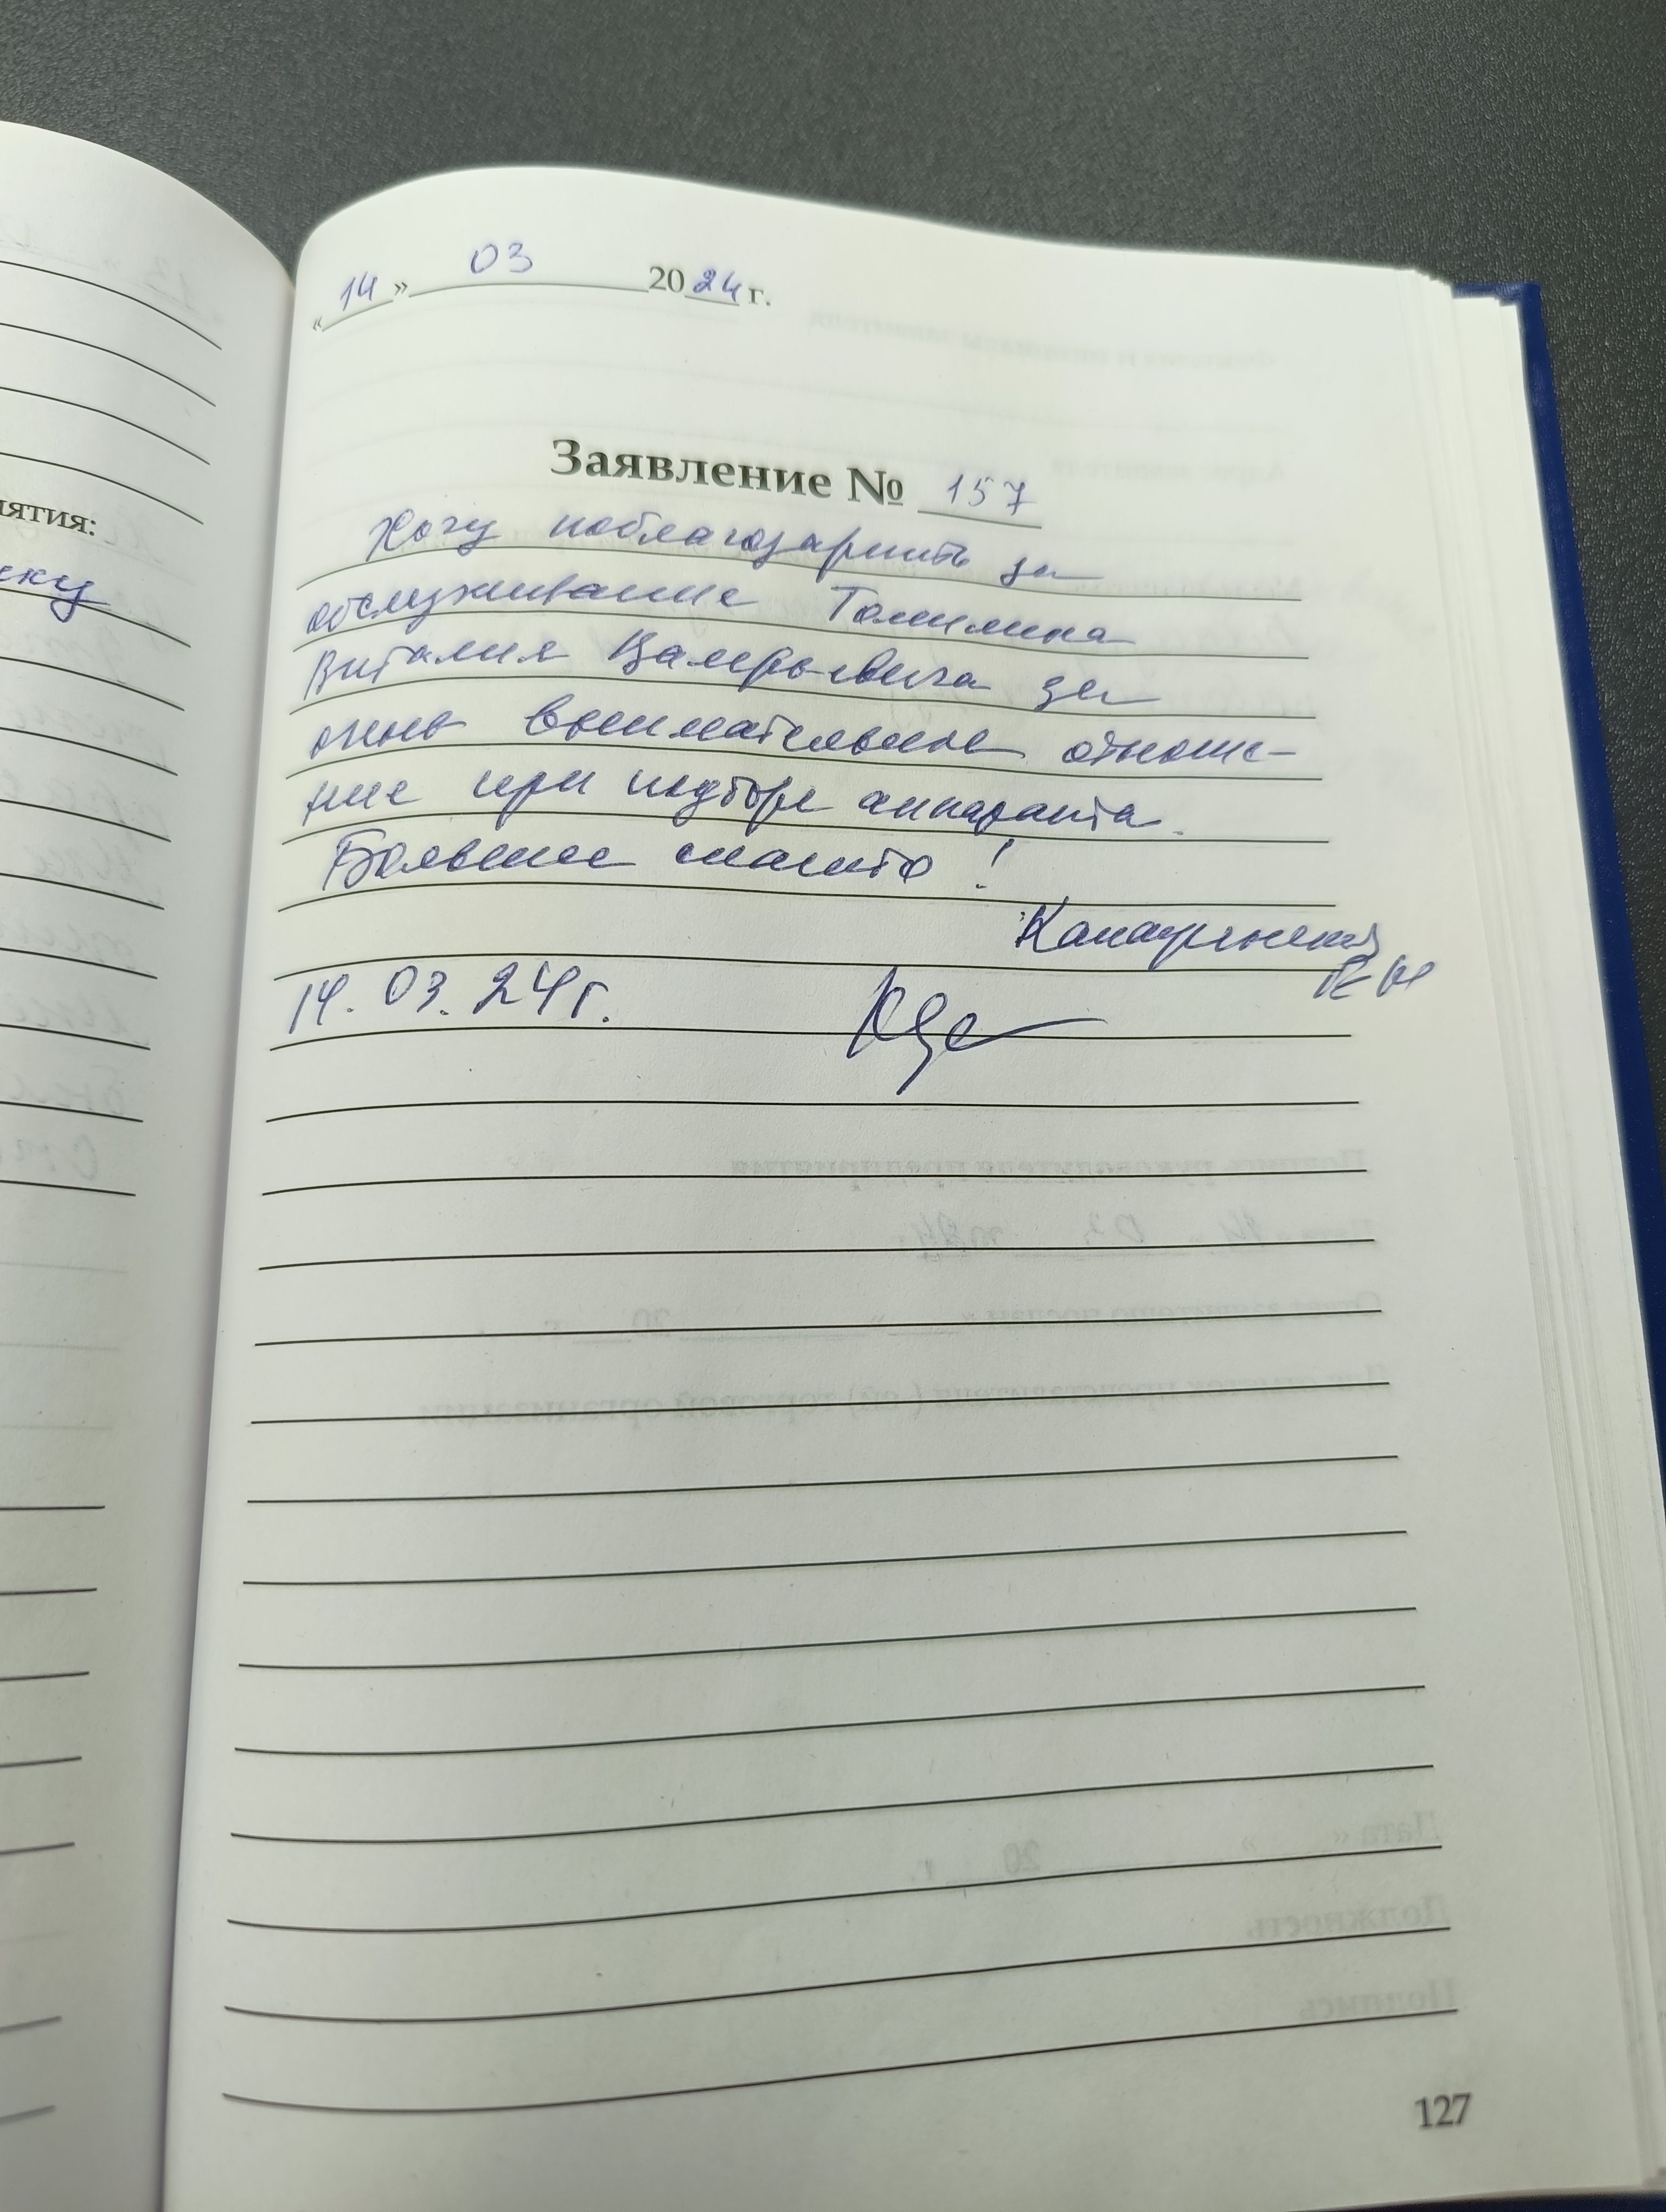 ятия:
ску
«14» 03 2024 г.
Заявление № 157
Хочу поблагодарить за
обслуживание Томилина
Виталия Валерьевича за
очень внимательное отноше-
ние при подборе аппарата.
Большое спасибо!
14.03.24г.
127